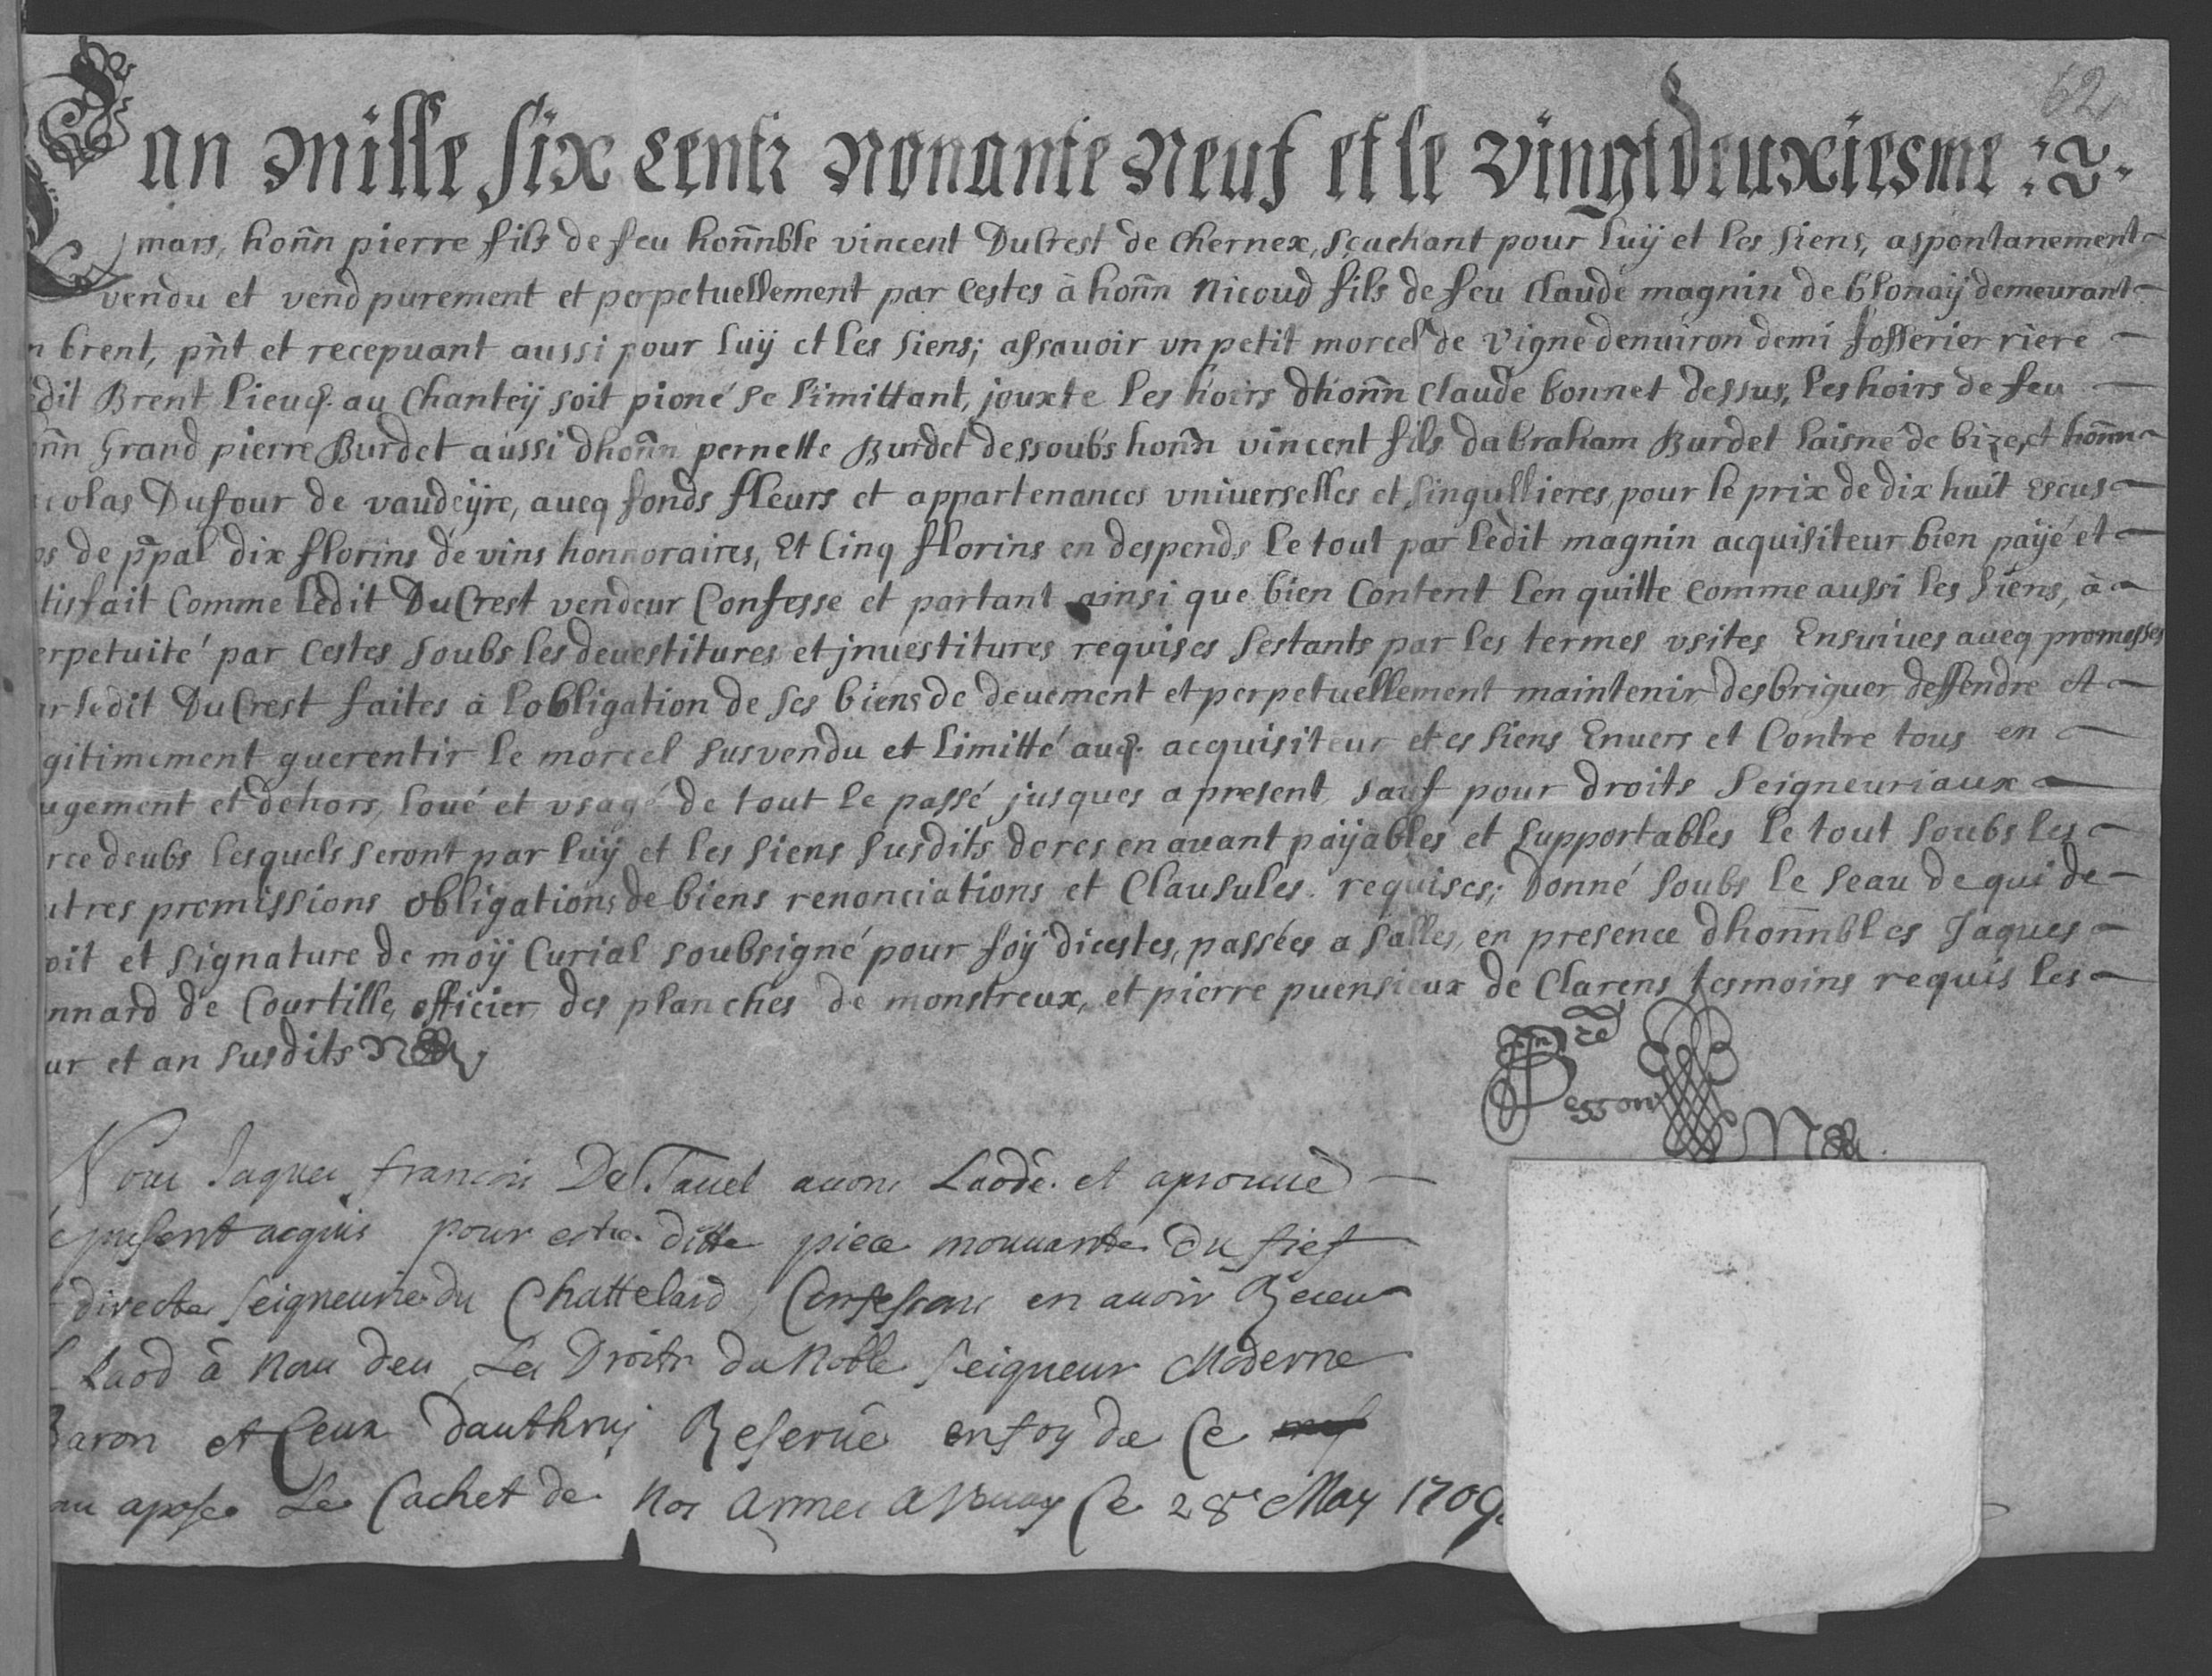 62
L'an Mille Six Centz Nonante Neuf et le Vingtdeuxiesme
mars, honn pierre fils de feu honnble vincent DuCrest de Chernex, sçachant pour luÿ et les siens, a spontanement
vendu et vend purement et perpetuellement par cestes à honn Nicoud fils de feu Claude magnin de blonaÿ demeurant
n brent, pnt et recepuant aussi pour luÿ et les siens; assauoir vn petit morcel de vigne denuiron demi fosserier riere
dit Brent lieudt. au Chanteÿ soit pioné se limittant, jouxte les hoirs dhonn Claude bonnet dessus, les hoirs de feu
nn Grand pierre Burdet aussi dhonn pernette Burdet dessoubs honn vincent fils dabraham Burdet laisné de bize, et honn
icolas Dufour de vaudeÿre, aueq fonds fleurs et appartenances vniuerselles et singullieres, pour le prix de dix huit escus
ps de ppal dix florins de vins honnoraires, Et Cinq florins en despends le tout par ledit magnin acquisiteur bien païé et
tisfait Comme ledit DuCrest vendeur Confesse et partant ainsi que bien Content len quitte comme aussi les siens, à
erpetuité par cestes soubs les deuestitures et jnuestitures requises sestants par les termes vsites Ensuiues aueq promesses
ar ledit DuCrest faites à lobligation de ses biens de deuement et perpetuellement maintenir desbriguer deffendre et
gitimement guerentir le morcel susvendu et limitté audt. acquisiteur et es siens Enuers et Contre tous en
ugement et dehors, loué et vsagé de tout le passé jusques a present sauf pour droits Seigneuriaux
rce deubs lesquels seront par luÿ et les siens susdits dores en auant païables et supportables le tout soubs les
utres promissions obligations de biens renonciations et Clausules requises; Donné soubs le seau de qui de
oit et signature de moÿ Curial soubsigné pour foÿ dicestes, passées a Salles, en presence dhonnbles Jaques
nnard de Courtille, officier des planches de monstreux, et pierre puensieux de Clarens tesmoins requis les
ur et an susdits
Besson
Nous Jaques francois De Tauel auons Laodé et aprouué
le present acquis pour estre ditte piece mouuante du fief
directe seigneurie du Chattelard Confessons en auoir Receu
L Laod à Nou deu Les Droits du Noble Seigneur Moderne
Baron et Ceux dauthruÿ Reserué en foy de Ce
au aposé Le Cachet de Nos Armes A Vuay Ce 28e May 1709.